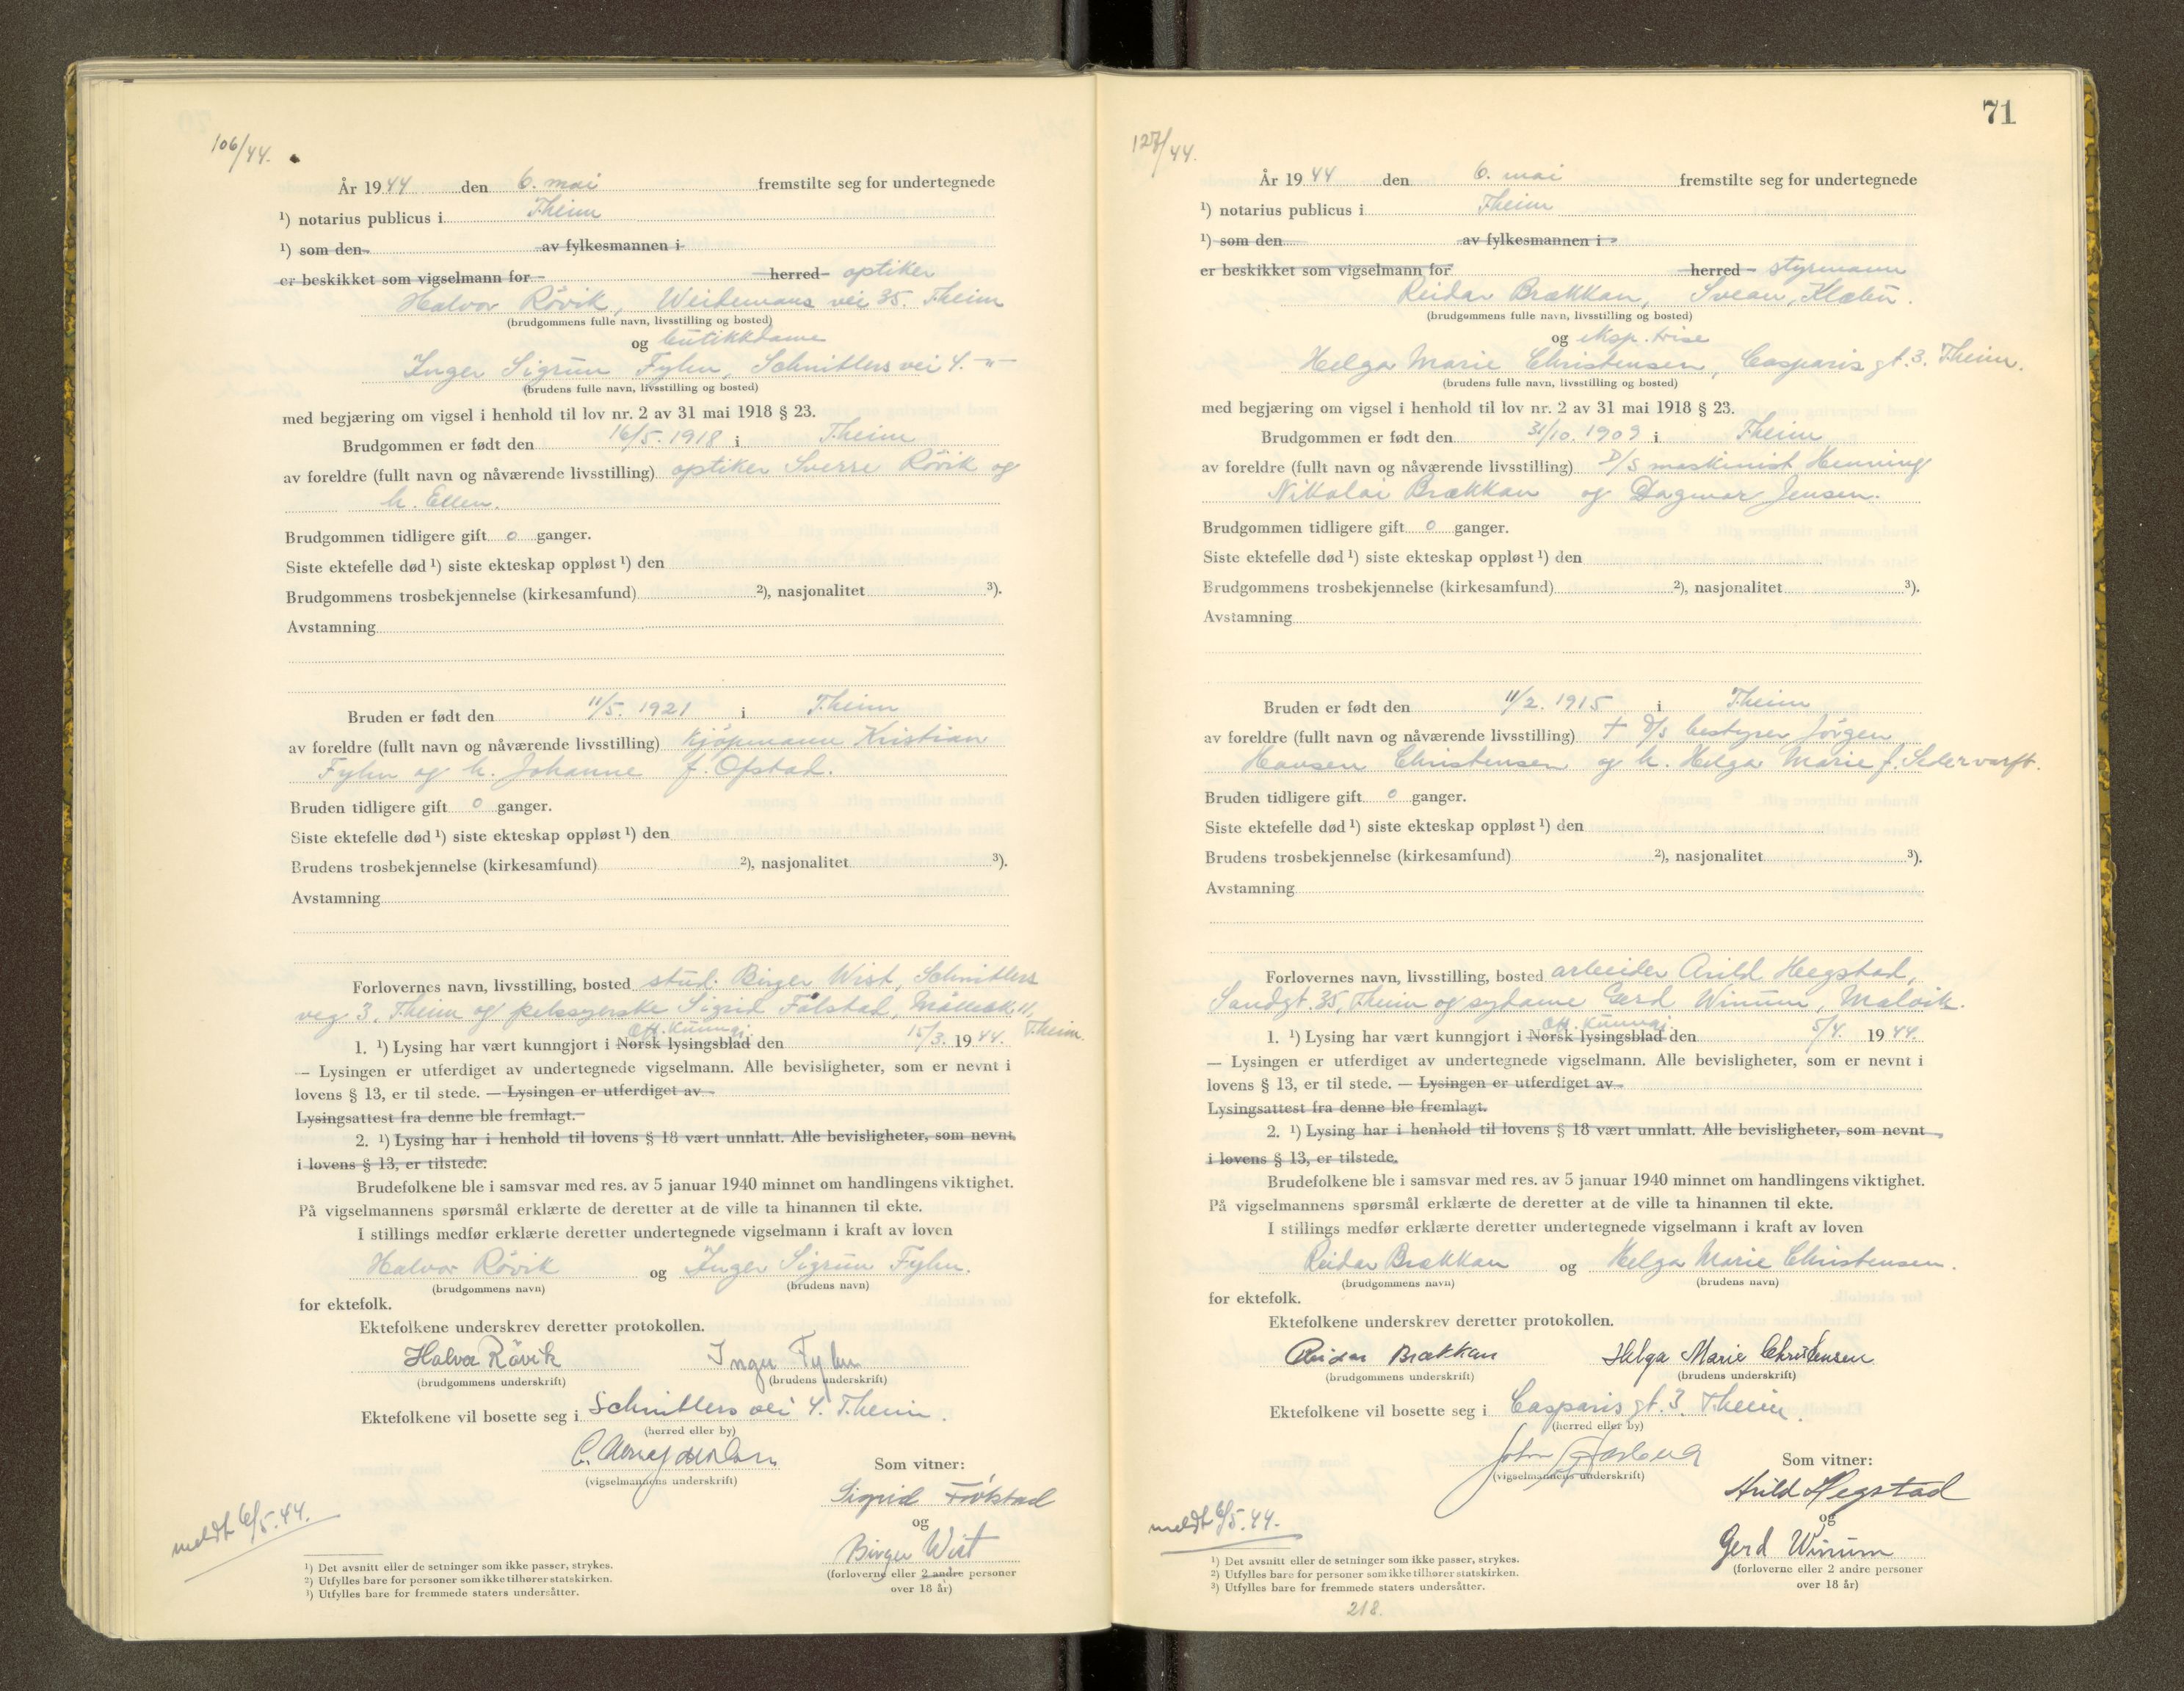 106/44.
År 1944 den 6. mai fremstilte seg for undertegnede
¹) notarius publicus i T.heim
¹) som den av fylkesmannen i
er beskikket som vigselmann for herred optiker
Halvor Rövik, Weidemans vei 35. T.heim
(brudgommens fulle navn, livsstilling og bosted)
og butikkdame
Inger Sigrun Fyhn, Schnitlers vei 4. -"-
(brudens fulle navn, livsstilling og bosted)
med begjæring om vigsel i henhold til lov nr. 2 av 31 mai 1918 § 23.
Brudgommen er født den 16/5. 1918 i T.heim
av foreldre (fullt navn og nåværende livsstilling) optiker Sverre Rövik og
h. Ellen.
Brudgommen tidligere gift 0 ganger.
Siste ektefelle død ¹) siste ekteskap oppløst ¹) den
Brudgommens trosbekjennelse (kirkesamfund) ²), nasjonalitet ³).
Avstamning
Bruden er født den 11/5. 1921 i T.heim
av foreldre (fullt navn og nåværende livsstilling) kjöpmann Kristian
Fyhn og h. Johanne f. Ofstad.
Bruden tidligere gift 0 ganger.
Siste ektefelle død ¹) siste ekteskap oppløst ¹) den
Brudens trosbekjennelse (kirkesamfund) ²), nasjonalitet ³).
Avstamning
Forlovernes navn, livsstilling, bosted stud. Birger Wist, Schnitlers
veg 3, T.heim og pelssyerske Sigrid Folstad, 11, T.heim
Off. kunngj.
1. ¹) Lysing har vært kunngjort i Norsk lysingsblad den 15/3. 1944.
— Lysingen er utferdiget av undertegnede vigselmann. Alle bevisligheter, som er nevnt i
lovens § 13, er til stede. — Lysingen er utferdiget av
Lysingsattest fra denne ble fremlagt.
2. ¹) Lysing har i henhold til lovens § 18 vært unnlatt. Alle bevisligheter, som nevnt
i lovens § 13, er tilstede.
Brudefolkene ble i samsvar med res. av 5 januar 1940 minnet om handlingens viktighet.
På vigselmannens spørsmål erklærte de deretter at de ville ta hinannen til ekte.
I stillings medfør erklærte deretter undertegnede vigselmann i kraft av loven
Halvor Rövik og Inger Sigrun Fyhn.
(brudgommens navn) (brudens navn)
for ektefolk.
Ektefolkene underskrev deretter protokollen.
Halvor Rövik Inger Fyhn
(brudgommens underskrift) (brudens underskrift)
Ektefolkene vil bosette seg i Schnitlers vei 4. T.heim.
(herred eller by)
(vigselmannens underskrift)
Som vitner:
Sigrid Folstad
og
Birger Wist
(forloverne eller 2 andre personer
over 18 år)
meldt 6/5.44.
¹) Det avsnitt eller de setninger som ikke passer, strykes.
²) Utfylles bare for personer som ikke tilhører statskirken.
³) Utfylles bare for fremmede staters undersåtter.
71
127/44.
År 1944 den 6. mai fremstilte seg for undertegnede
¹) notarius publicus i T.heim
¹) som den av fylkesmannen i
er beskikket som vigselmann for herred styrmann
Reidar Brækkan, Svean, Klæbu.
(brudgommens fulle navn, livsstilling og bosted)
og eksp. trise
Helga Marie Christensen, Casparis gt. 3. T.heim.
(brudens fulle navn, livsstilling og bosted)
med begjæring om vigsel i henhold til lov nr. 2 av 31 mai 1918 § 23.
Brudgommen er født den 31/10. 1909 i T.heim
av foreldre (fullt navn og nåværende livsstilling) D/S maskinist Henning
Nikolai Brækkan og Dagmar Jensen.
Brudgommen tidligere gift 0 ganger.
Siste ektefelle død ¹) siste ekteskap oppløst ¹) den
Brudgommens trosbekjennelse (kirkesamfund) ²), nasjonalitet ³).
Avstamning
Bruden er født den 11/2. 1915 i T.heim
av foreldre (fullt navn og nåværende livsstilling) + D/s bestyrer Jörgen
Hansen Christensen og h. Helga Marie f.
Bruden tidligere gift 0 ganger.
Siste ektefelle død ¹) siste ekteskap oppløst ¹) den
Brudens trosbekjennelse (kirkesamfund) ²), nasjonalitet ³).
Avstamning
Forlovernes navn, livsstilling, bosted arbeider Arild Hegstad,
Sandgt. 35, T.heim og sydame Gerd Winum, Malvik.
Off. kunngj.
1. ¹) Lysing har vært kunngjort i Norsk lysingsblad den 5/4. 1944.
— Lysingen er utferdiget av undertegnede vigselmann. Alle bevisligheter, som er nevnt i
lovens § 13, er til stede. — Lysingen er utferdiget av
Lysingsattest fra denne ble fremlagt.
2. ¹) Lysing har i henhold til lovens § 18 vært unnlatt. Alle bevisligheter, som nevnt
i lovens § 13, er tilstede.
Brudefolkene ble i samsvar med res. av 5 januar 1940 minnet om handlingens viktighet.
På vigselmannens spørsmål erklærte de deretter at de ville ta hinannen til ekte.
I stillings medfør erklærte deretter undertegnede vigselmann i kraft av loven
Reidar Brækkan og Helga Marie Christensen.
(brudgommens navn) (brudens navn)
for ektefolk.
Ektefolkene underskrev deretter protokollen.
Reidar Brækkan Helga Marie Christensen
(brudgommens underskrift) (brudens underskrift)
Ektefolkene vil bosette seg i Casparis gt. 3. T.heim.
(herred eller by)
John
(vigselmannens underskrift)
Som vitner:
Arild Hegstad
og
Gerd Winum
(forloverne eller 2 andre personer
over 18 år)
meldt 6/5.44.
¹) Det avsnitt eller de setninger som ikke passer, strykes.
²) Utfylles bare for personer som ikke tilhører statskirken.
³) Utfylles bare for fremmede staters undersåtter.
218.